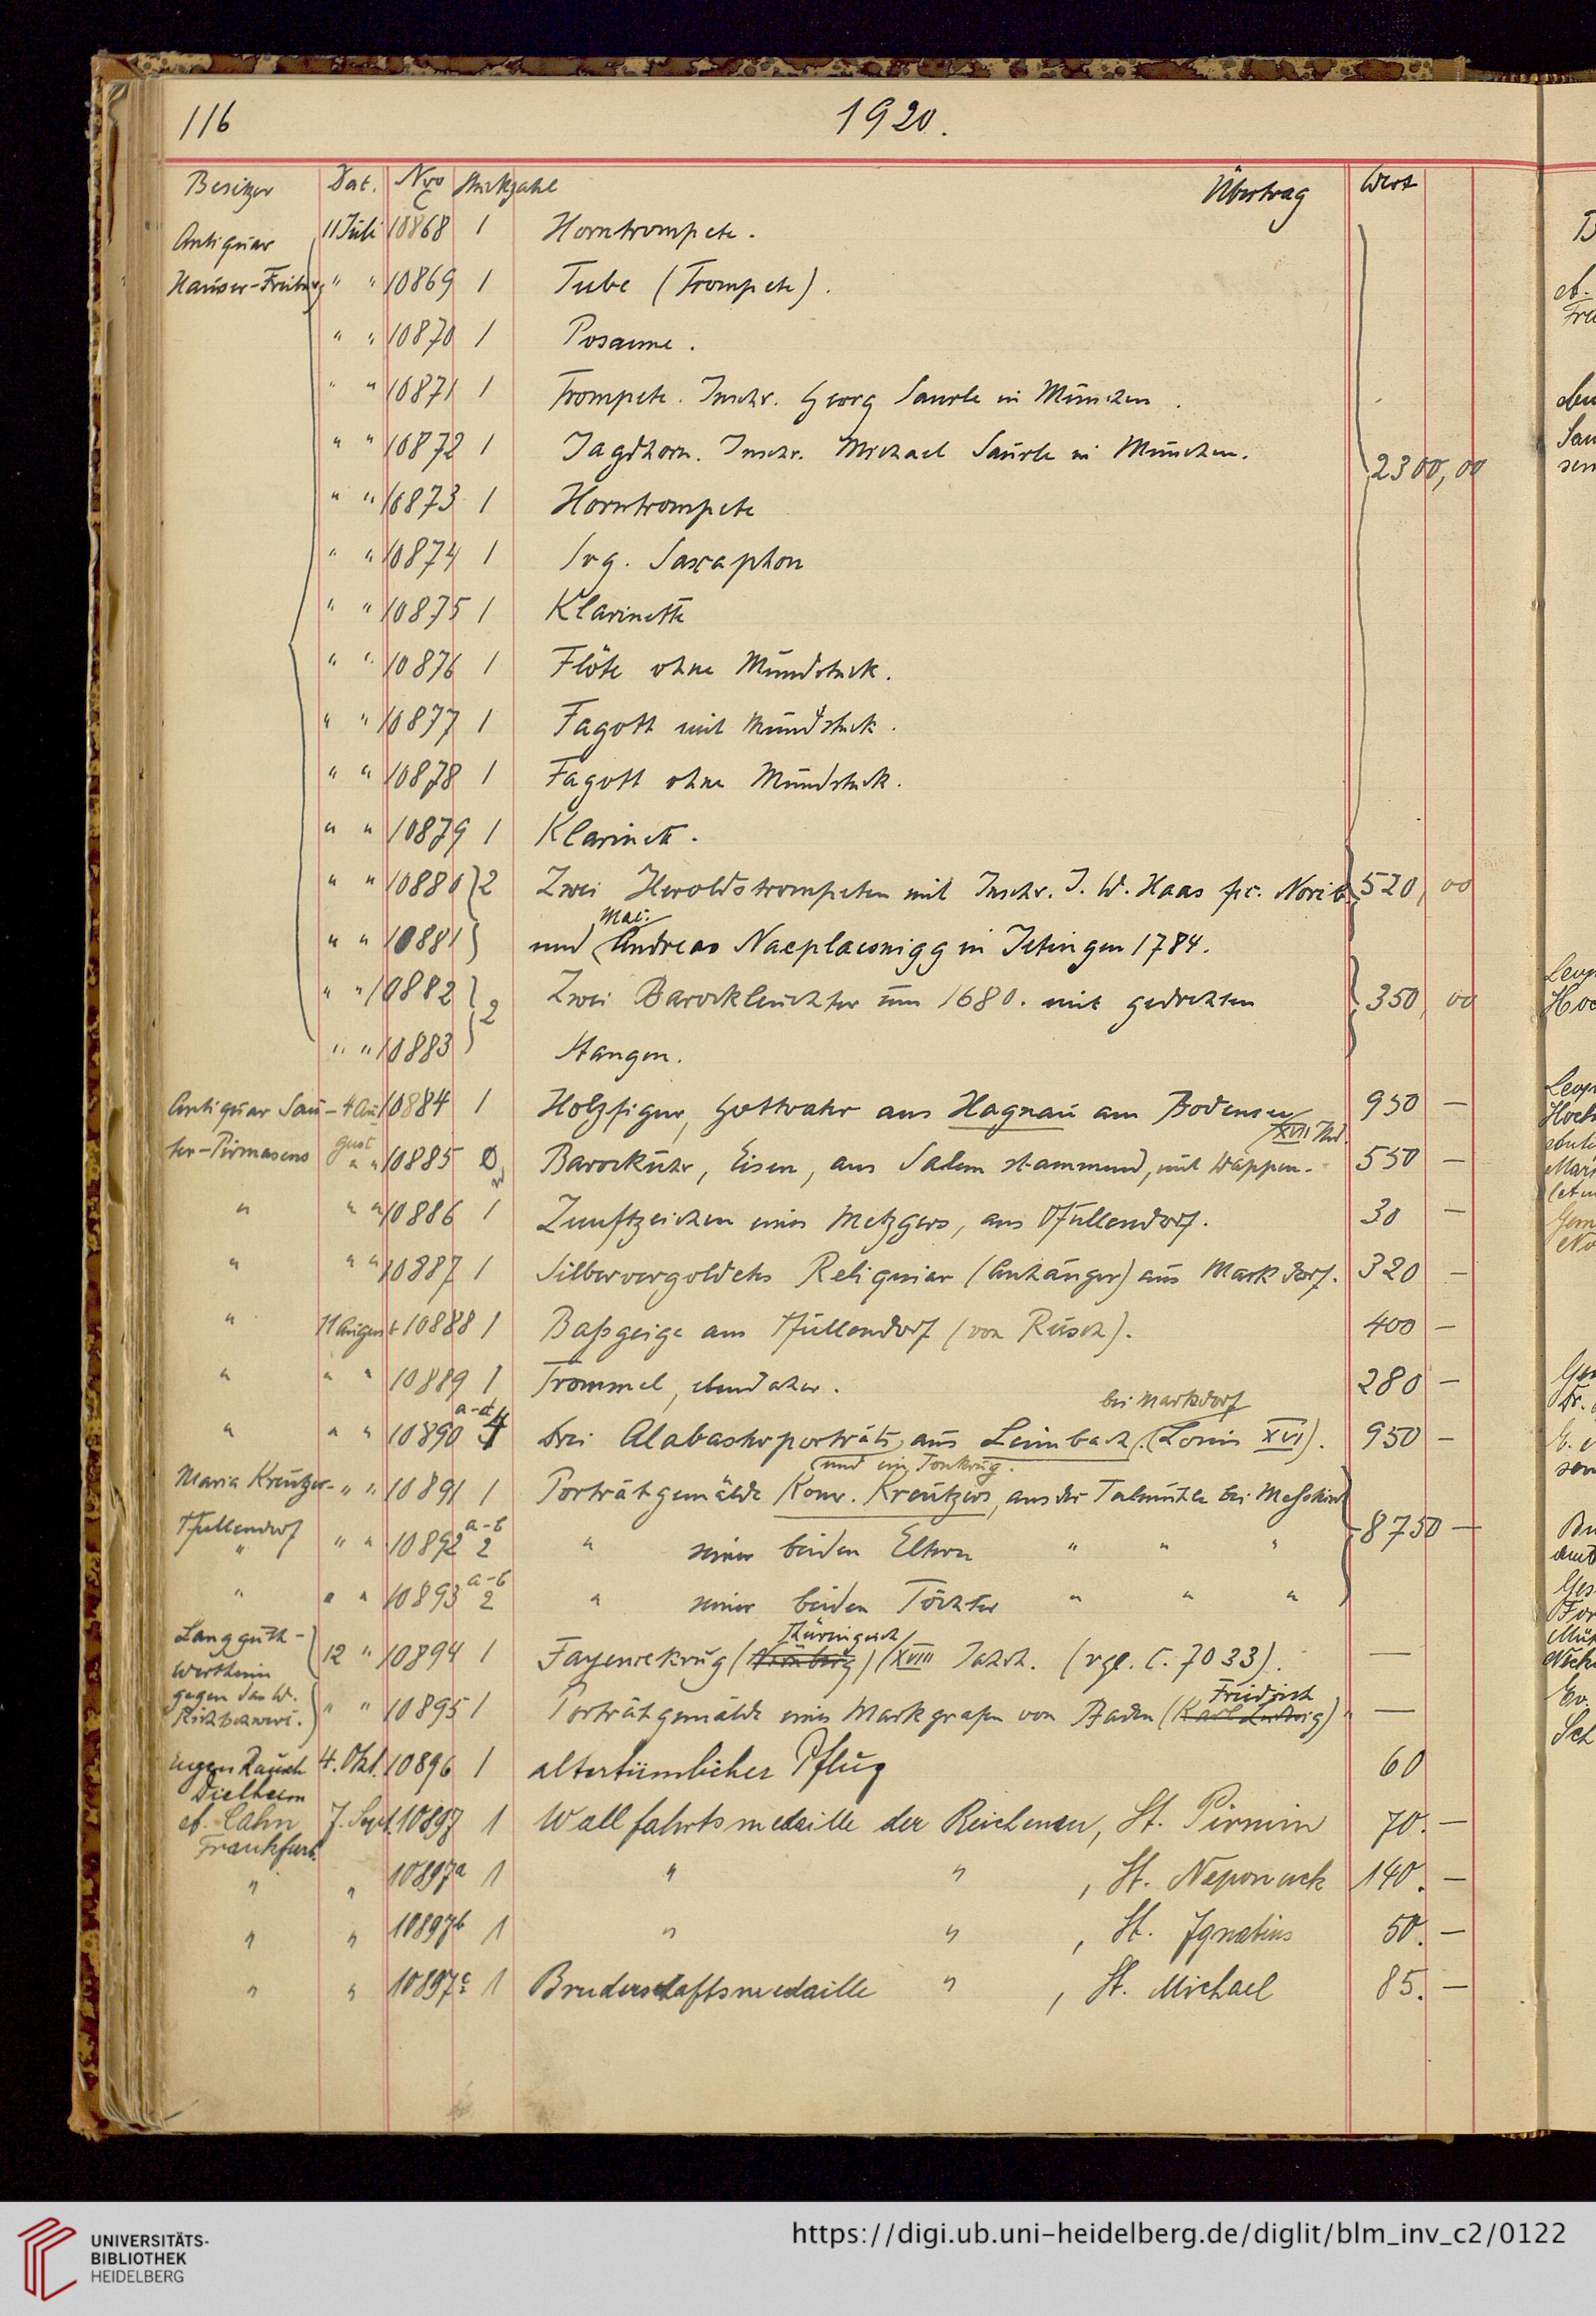 116 1920.
Besitzer Dat. Nro C Stückzahl Übertrag Wert
Antiquar 11 Juli 10868 1 Horntrompete.
Hauser-Freiburg " " 10869 1 Tube (Trompete).
" " 10870 1 Posaune.
" " 10871 1 Trompete. Inschr. Georg Saurle in München.
" " 10872 1 Jagdhorn. Inschr. Michael Saurle in München. 2300,00
" " 10873 1 Horntrompete
" " 10874 1 Sog. Saxaphon
" " 10875 1 Klarinette
" " 10876 1 Flöte ohne Mundstück.
" " 10877 1 Fagott mit Mundstück.
" " 10878 1 Fagott ohne Mundstück.
" " 10879 1 Klarinett.
" " 10880 } 2 Zwei Heroldstrompeten mit Inschr. J. W. Haas fec. Norib. 520,00
" " 10881 } und Mac: Andreas Naeplaesnigg in Jetingen 1784.
" " 10882 } 2 Zwei Barockleuchter um 1680. mit gedrehten 350,00
" " 10883 } Stangen.
Antiquar Sau- 4 Au 10884 1 Holzfigur, Gottvater aus Hagnau am Bodensee 950 —
ter-Pirmasens gust " " 10885 Barockuhr, Eisen, aus Salem stammend, mit Wappen. XVII Jhd. 550 —
" " " 10886 1 Zunftzeichen eines Metzgers, aus Pfullendorf. 30 —
" " " 10887 1 Silbervergoldetes Reliquiar (Anhänger) aus Markdorf. 320 —
" 11 August 10888 1 Baßgeige aus Pfullendorf (von Rüsch). 400 —
" " " 10889 1 Trommel, ebendaher. 280 —
" " " 10890 a-d 4 Drei Alabasterporträts aus Leimbach bei Markdorf (Louis XVI). 950 —
und ein Tonkrug.
Maria Kreutzer- " " 10891 1 Porträtgemälde Konr. Kreutzers, aus der Talmühle bei Meßkirch
Pfullendorf " " 10892 a-b 2 " seiner beiden Eltern " " " 8750 —
" " " 10893 a-b 2 " seiner beiden Töchter " " "
Langguth- 12 " 10894 1 Fayencekrug (Nürnberg) Thüringisch (XVIII Jahrh. (vgl. C. 7033). —
Wertheim
gegen das W. " " 10895 1 Porträtgemälde eines Markgrafen von Baden (Karl Ludwig) Friedrich —
Eugen Rausch 4. Okt. 10896 1 altertümlicher Pflug 60
Dielheim
A. Cahn 7. Sept. 10897 1 Wallfahrtsmedaille der Reichenau, St. Pirmin 70. —
Frankfurt.
" " 10897a 1 " " , St. Nepomuck 140. —
" " 10897b 1 " " , St. Ignatius 50. —
" " 10897c 1 Bruderschaftsmedaille " , St. Michael 85. —
UNIVERSITÄTS-
BIBLIOTHEK
HEIDELBERG
https://digi.ub.uni-heidelberg.de/diglit/blm_inv_c2/0122